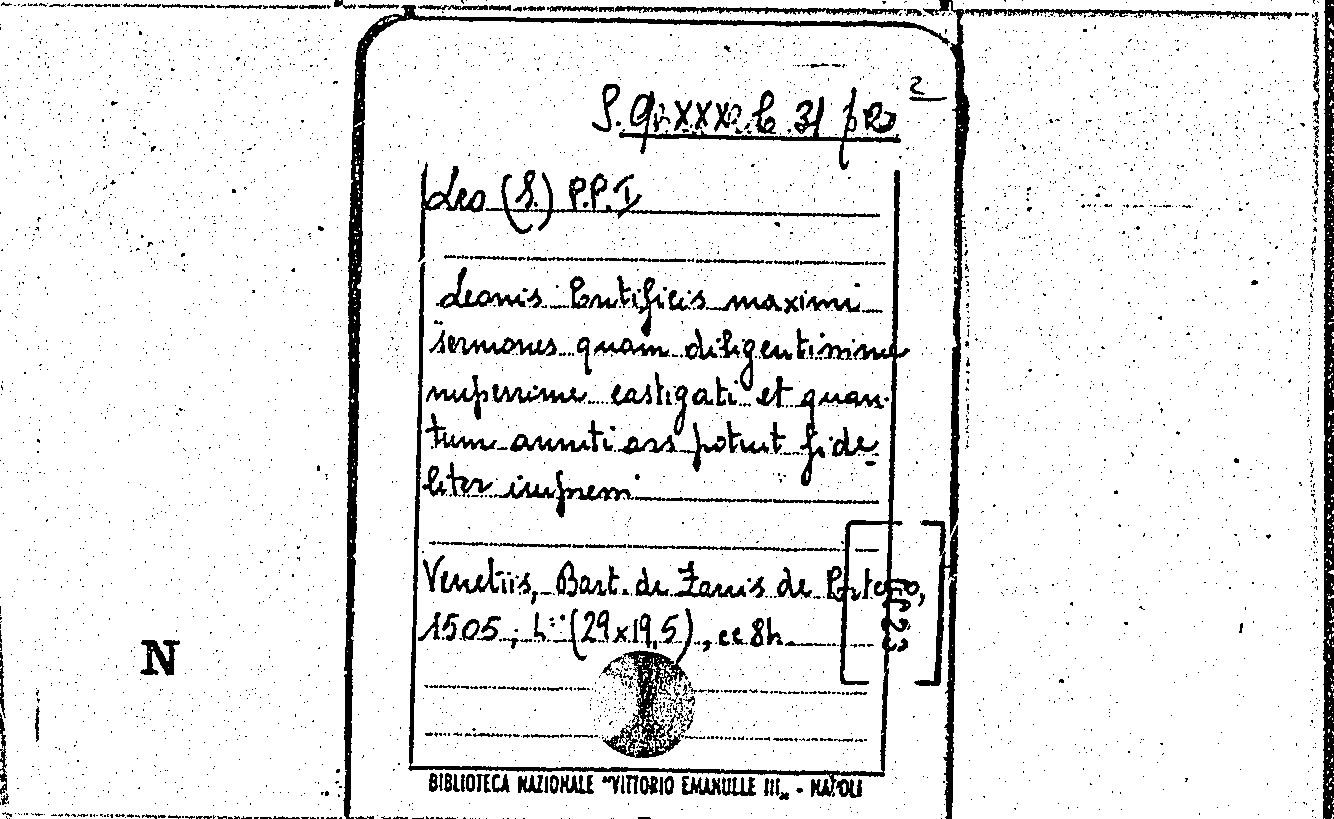 2
S. Q. XXX. C. 31
Leo (S.) P.P. I
Leonis Pontificis maximi
sermones quam diligentissime
nuperrime castigati et quan-
tum anniti ars potuit fide-
liter impressi
Venetiis, Bart. de Zanis de Portesio,
1505, (29x19,5), cc 84.
N
BIBLIOTECA NAZIONALE "VITTORIO EMANULLE III„ - NAPOLI